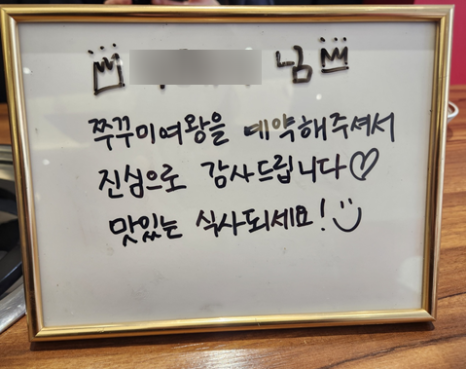 님
쭈꾸미여왕을 예약해주셔서
진심으로 감사드립니다♡
맛있는 식사되세요!